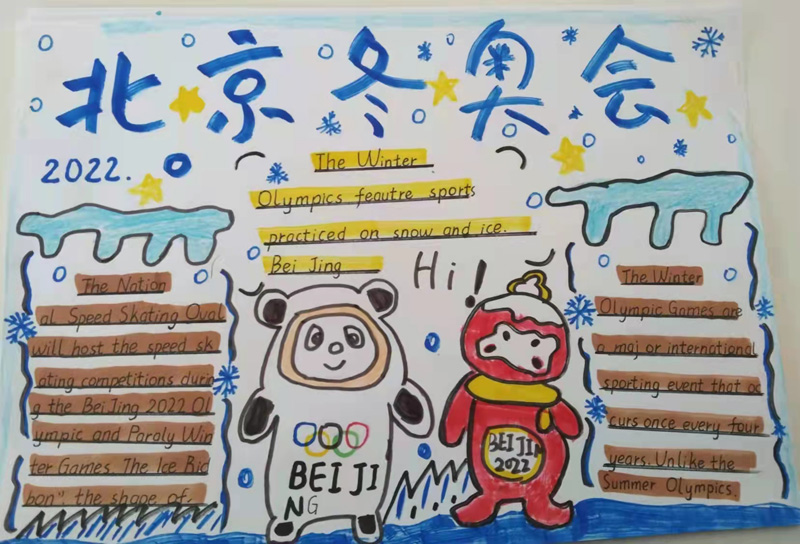 北京冬奥会
2022.
The Winter
Olympics feautre sports
practiced on snow and ice.
Bei Jing
Hi!
The Nation
al Speed Skating Oval
will host the speed sk
ating competitions durin
g the BeiJing 2022 Ol
ympic and Paraly Win
ter Games. The Ice Rib
bon", the shape of
BEIJI
NG
BEIJIN
2022
The Winter
Olympic Games are
a maj or international
sporting event that oc
curs once every four
years. Unlike the
Summer Olympics.